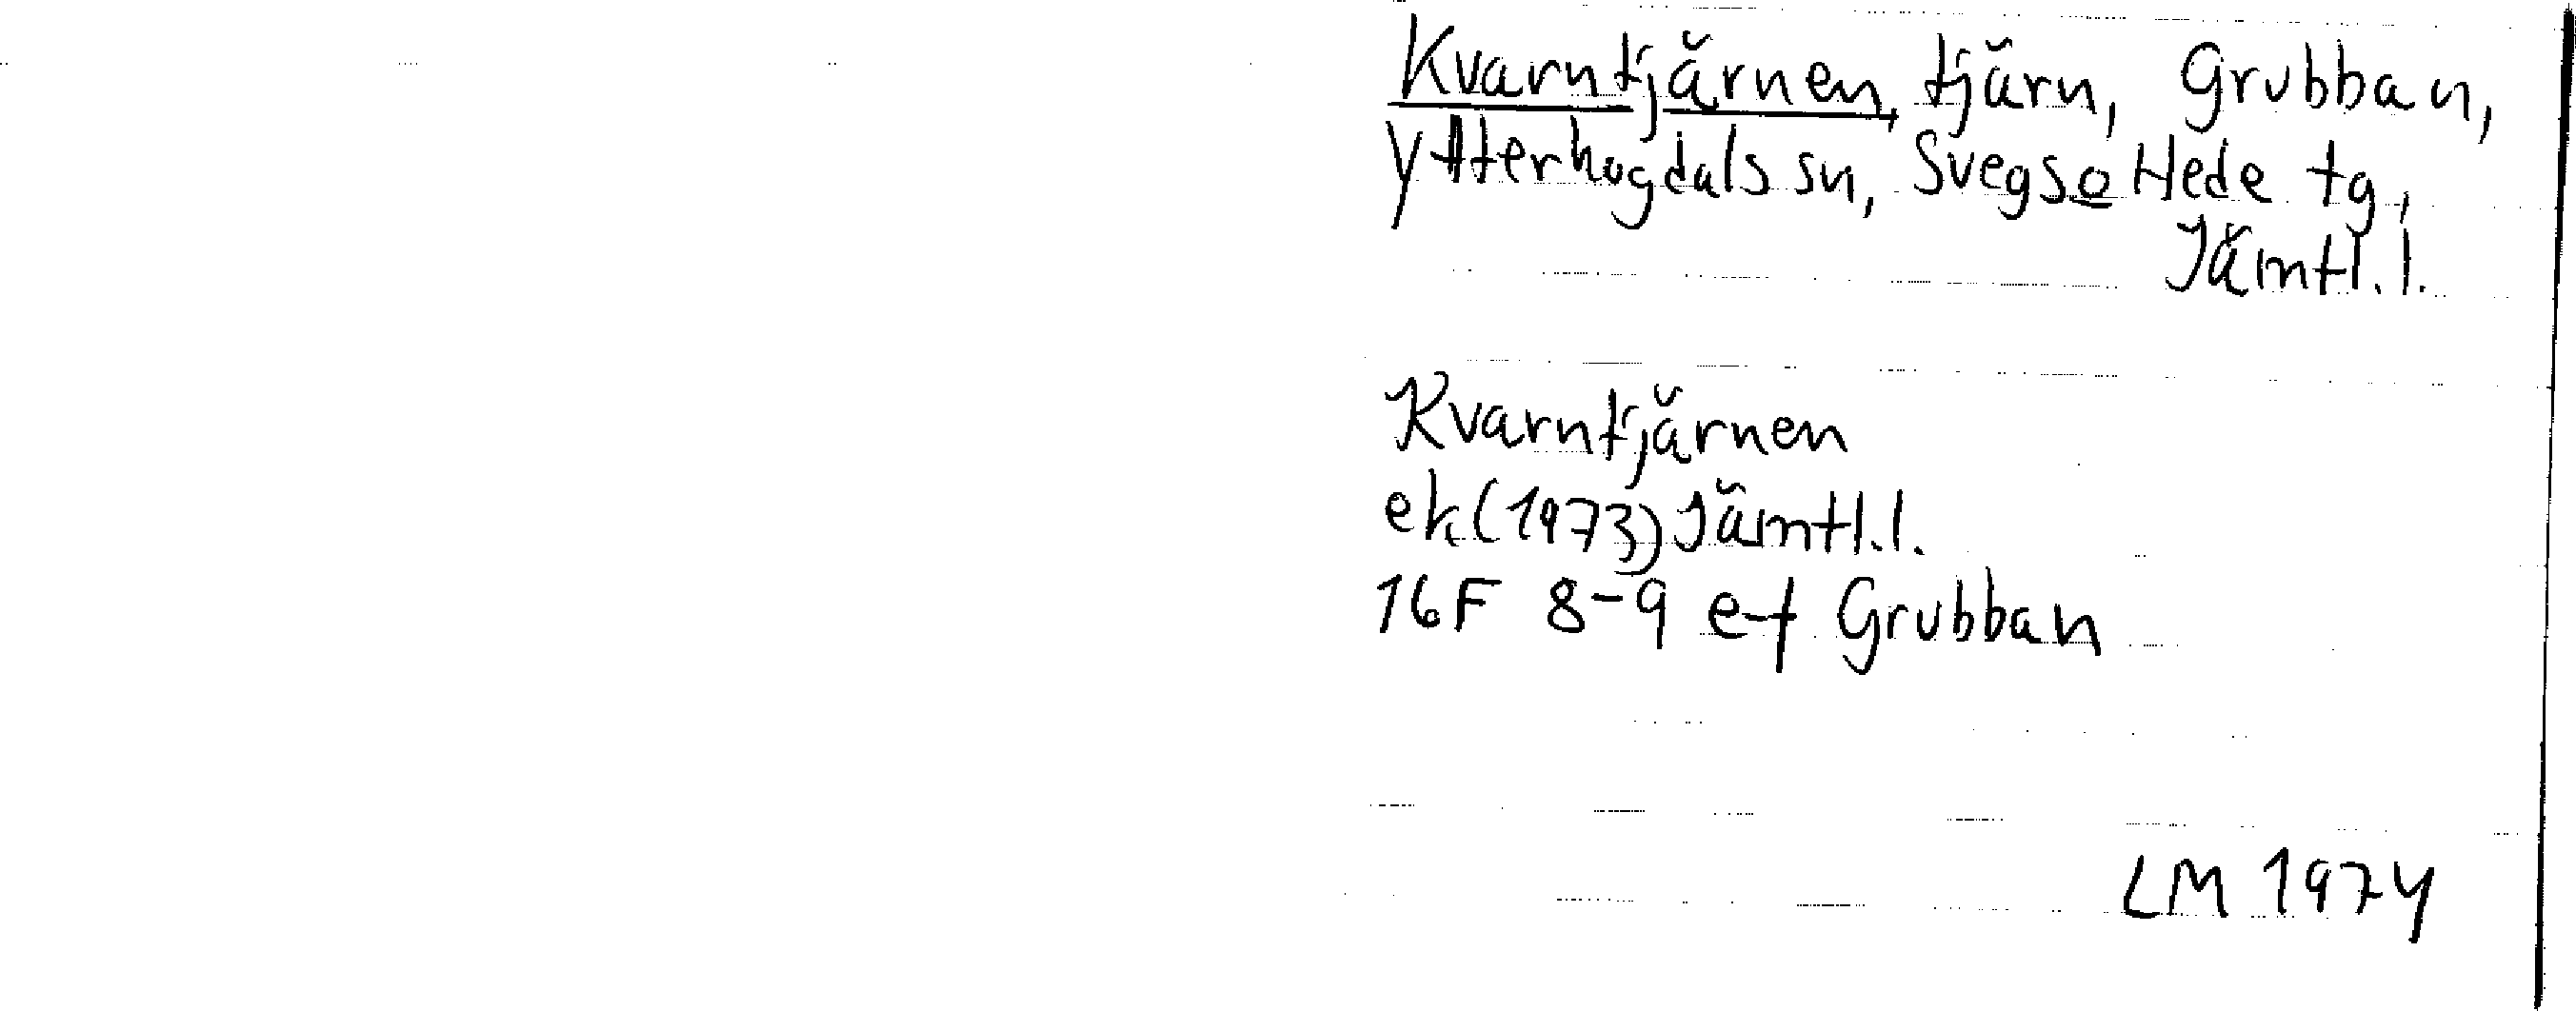 Kvarntjärnen, tjärn, Grubban,
Ytterhogdals sn, Svegs o Hede tg,
Jämtl.l.
Kvarntjärnen
ek (1973) Jämtl.l.
16F 8-9 e-f Grubban
LM 1974